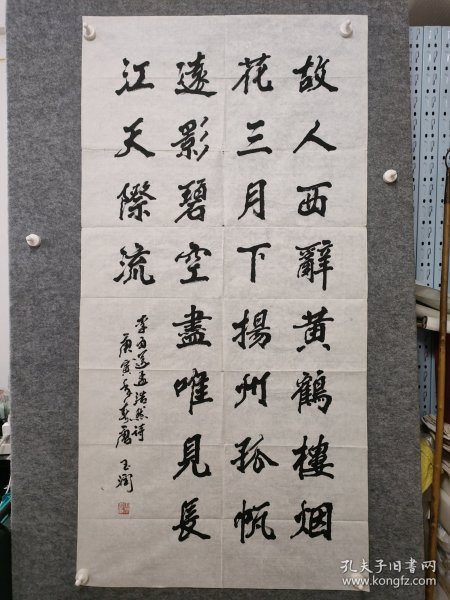 故人西辭黄鶴樓烟
花三月下揚州孤帆
遠影碧空盡唯見長
江天際流
李白送孟浩然詩
孔夫子旧书网
www.kongfz.com